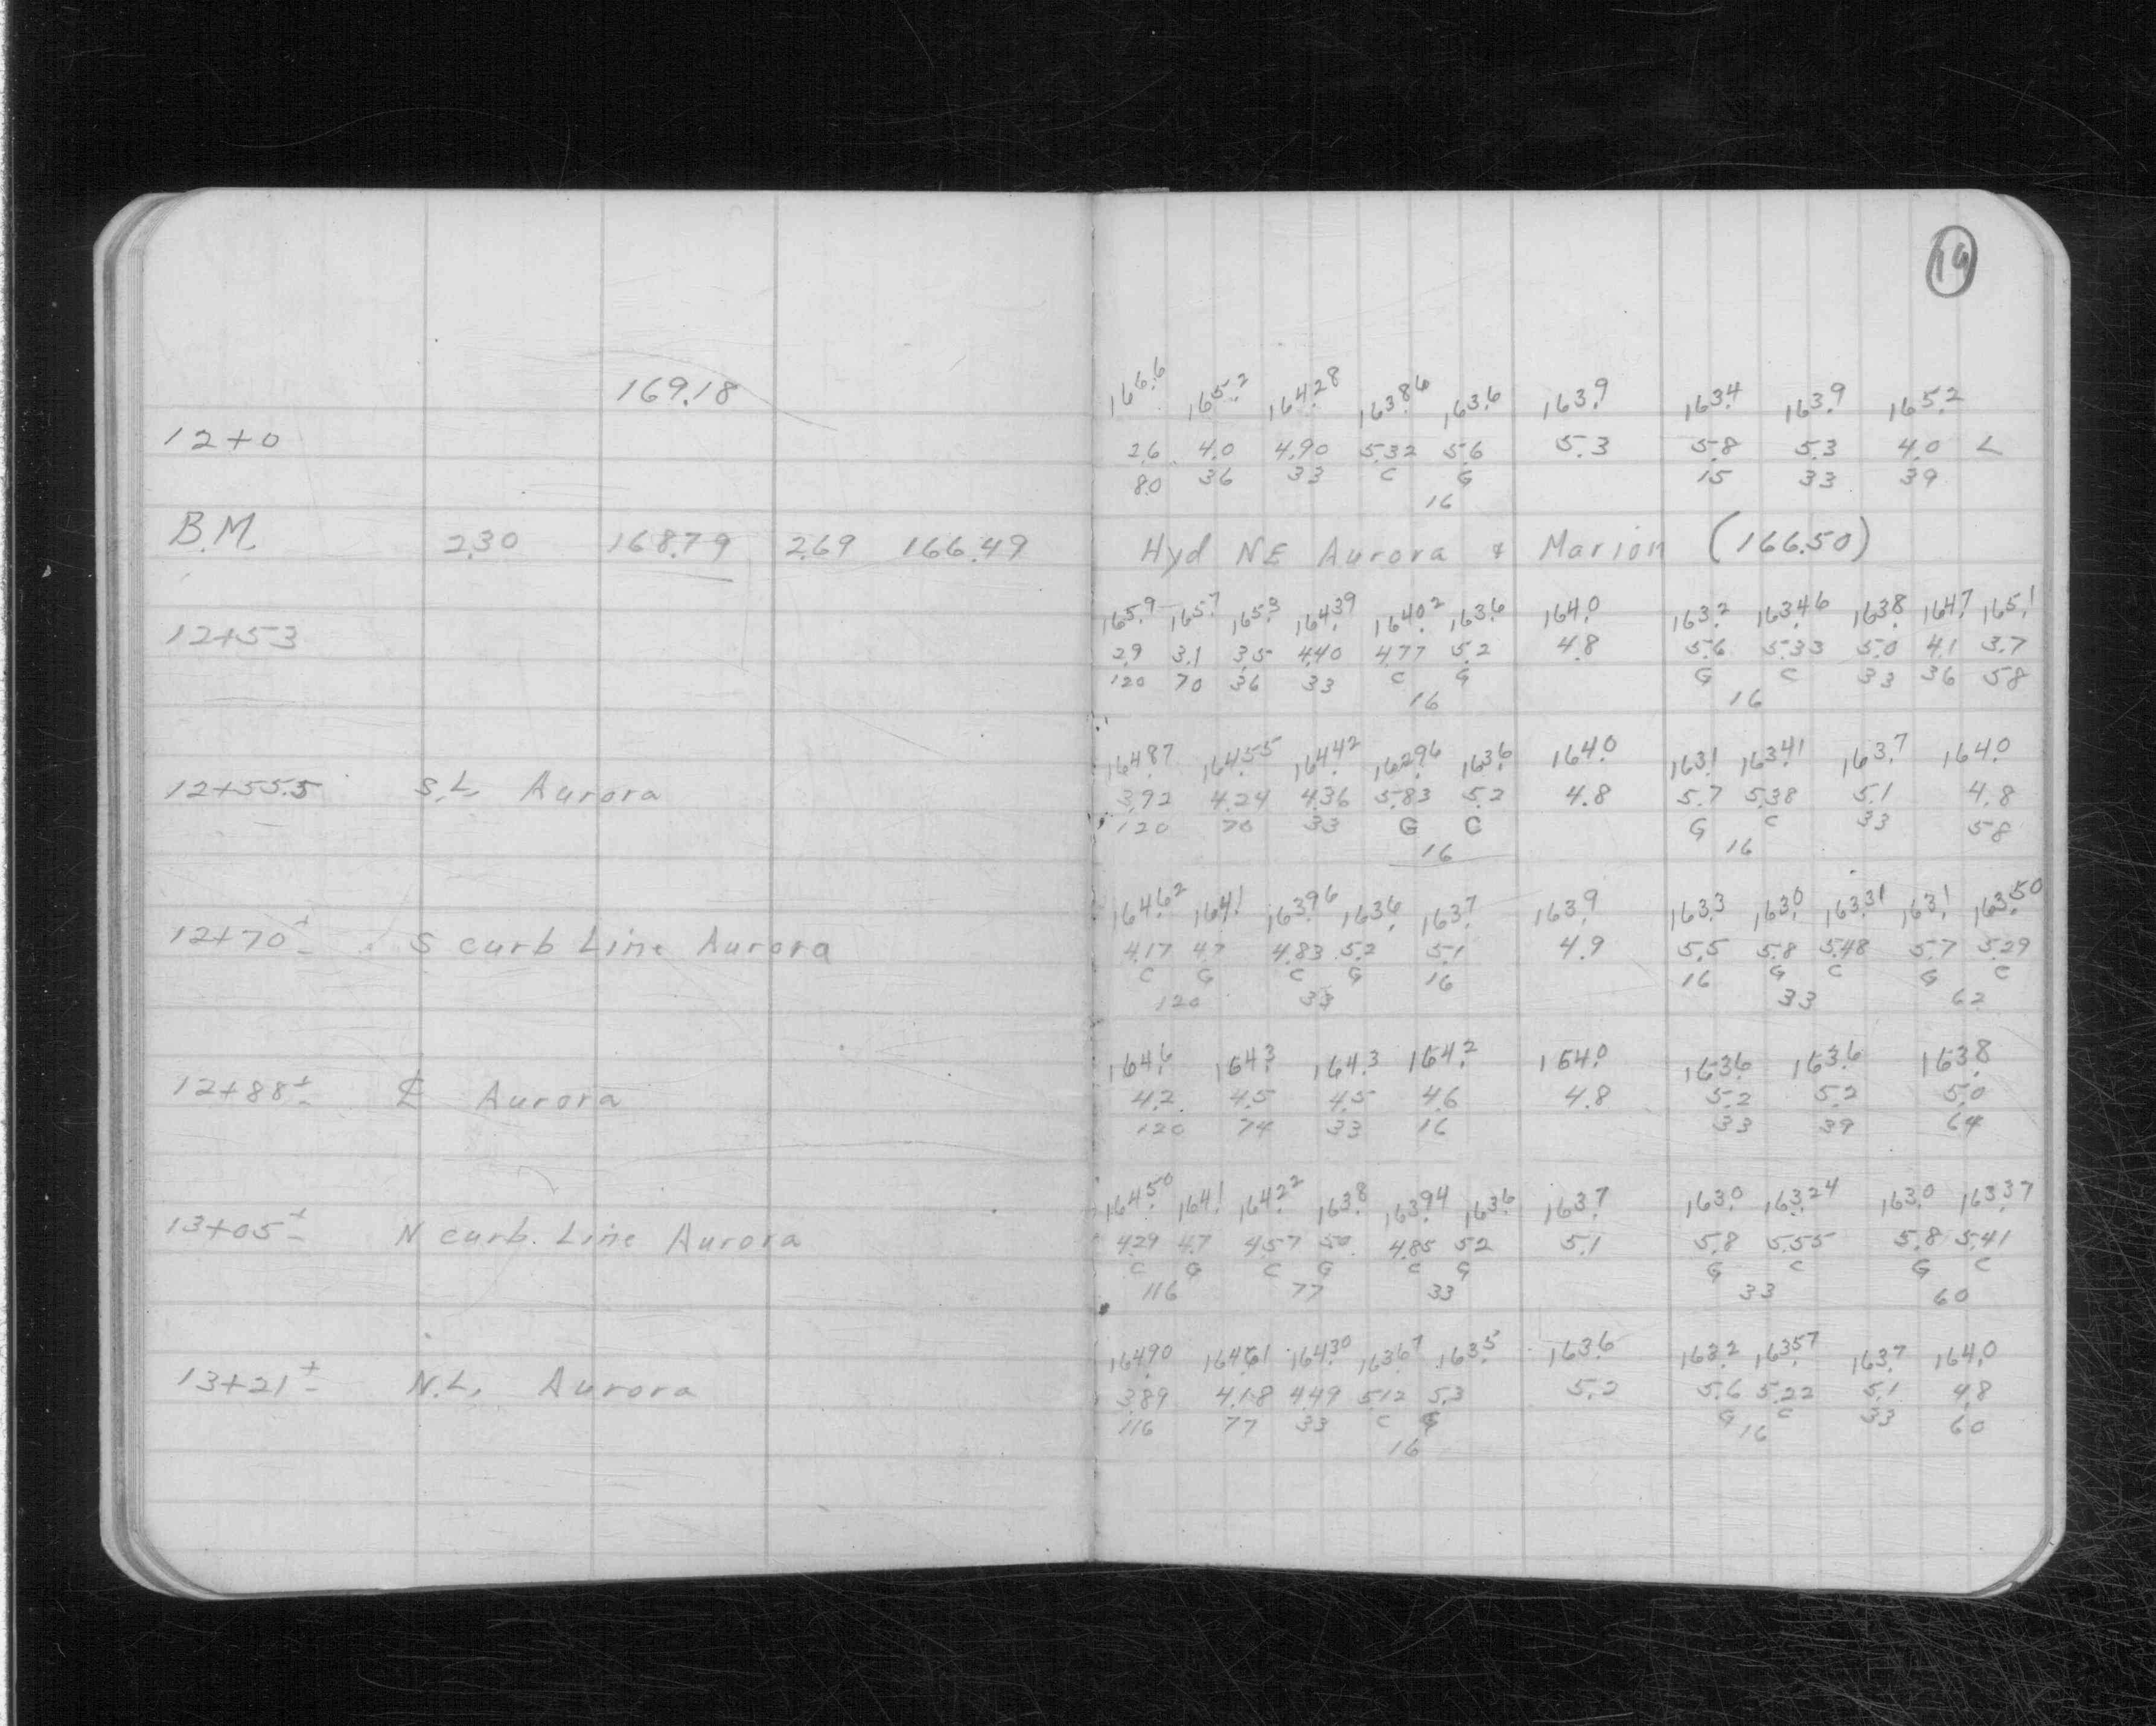 19
169.18 166.6 165.2 164.28 163.86 163.6 163.9 163.4 163.9 165.2
12+0 2.6 4.0 4.90 5.32 5.6 5.3 5.8 5.3 4.0 L
80 36 33 C G 15 33 39
16
B.M. 2.30 168.79 2.69 166.49 Hyd NE Aurora & Marion (166.50)
165.9 165.7 165.3 164.39 164.02 163.6 164.0 163.2 163.46 163.8 164.7 165.1
12+53 2.9 3.1 3.5 4.40 4.77 5.2 4.8 5.6 5.33 5.0 4.1 3.7
120 70 36 33 C G G C 33 36 58
16 16
164.87 164.55 164.42 162.96 163.6 164.0 163.1 163.41 163.7 164.0
12+55.5 S.L. Aurora 3.92 4.24 4.36 5.83 5.2 4.8 5.7 5.38 5.1 4.8
120 70 33 G C G C 33 58
16 16
164.62 164.1 163.96 163.6 163.7 163.9 163.3 163.0 163.31 163.1 163.50
12+70± S curb Line Aurora 4.17 4.7 4.83 5.2 5.1 4.9 5.5 5.8 5.48 5.7 5.29
C G C G 16 16 G C G C
120 33 33 62
164.6 164.3 164.3 164.2 164.0 163.6 163.6 163.8
12+88± ℄ Aurora 4.2 4.5 4.5 4.6 4.8 5.2 5.2 5.0
120 74 33 16 33 39 64
164.50 164.1 164.22 163.8 163.94 163.6 163.7 163.0 163.24 163.0 163.37
13+05± N curb. Line Aurora 4.29 4.7 4.57 5.0 4.85 5.2 5.1 5.8 5.55 5.8 5.41
C G C G C G G C G C
116 77 33 33 60
164.90 164.61 164.30 163.67 163.5 163.6 163.2 163.57 163.7 164.0
13+21± N.L. Aurora 3.89 4.18 4.49 5.12 5.3 5.2 5.6 5.22 5.1 4.8
116 77 33 C G G C 33 60
16 16